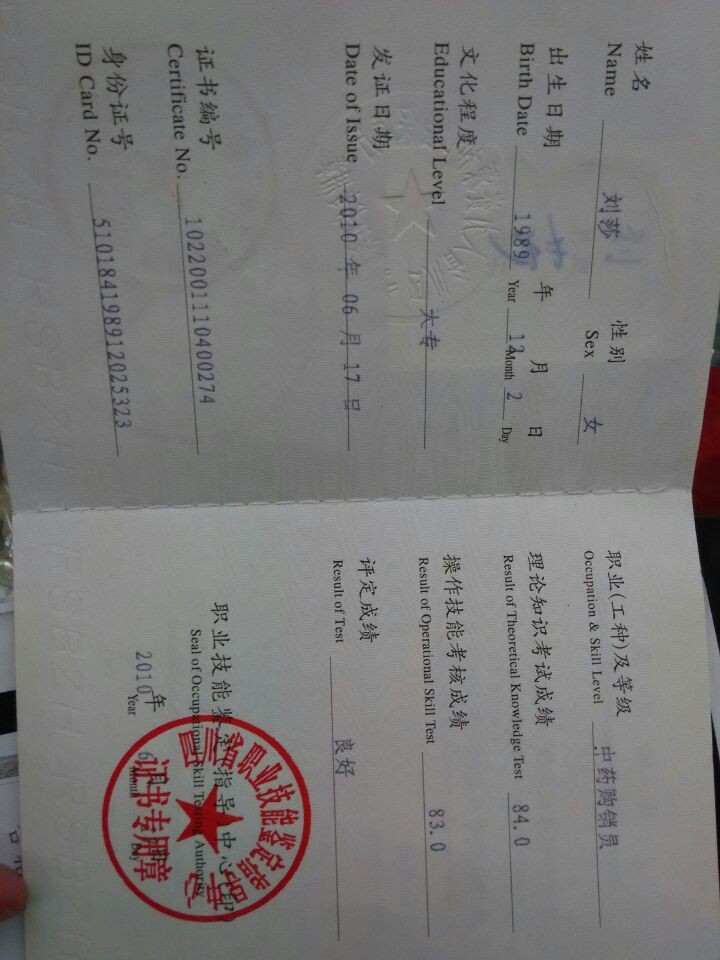 姓名 刘莎 性别 女
Name Sex
出生日期 1989 年 12 月 2 日
Birth Date Year Month Day
文化程度 大专
Educational Level
发证日期 2010 年 06 月 17 日
Date of Issue
证书编号 1022001110400274
Certificate No.
身份证号 510184198912025323
ID Card No.
职业(工种)及等级 中药购销员
Occupation & Skill Level
理论知识考试成绩 84.0
Result of Theoretical Knowledge Test
操作技能考核成绩 83.0
Result of Operational Skill Test
评定成绩 良好
Result of Test
职业技能鉴定指导中心(印)
Seal of Occupational Skill Testing Authority
2010 年 6 月
Year Month Day
证书专用章